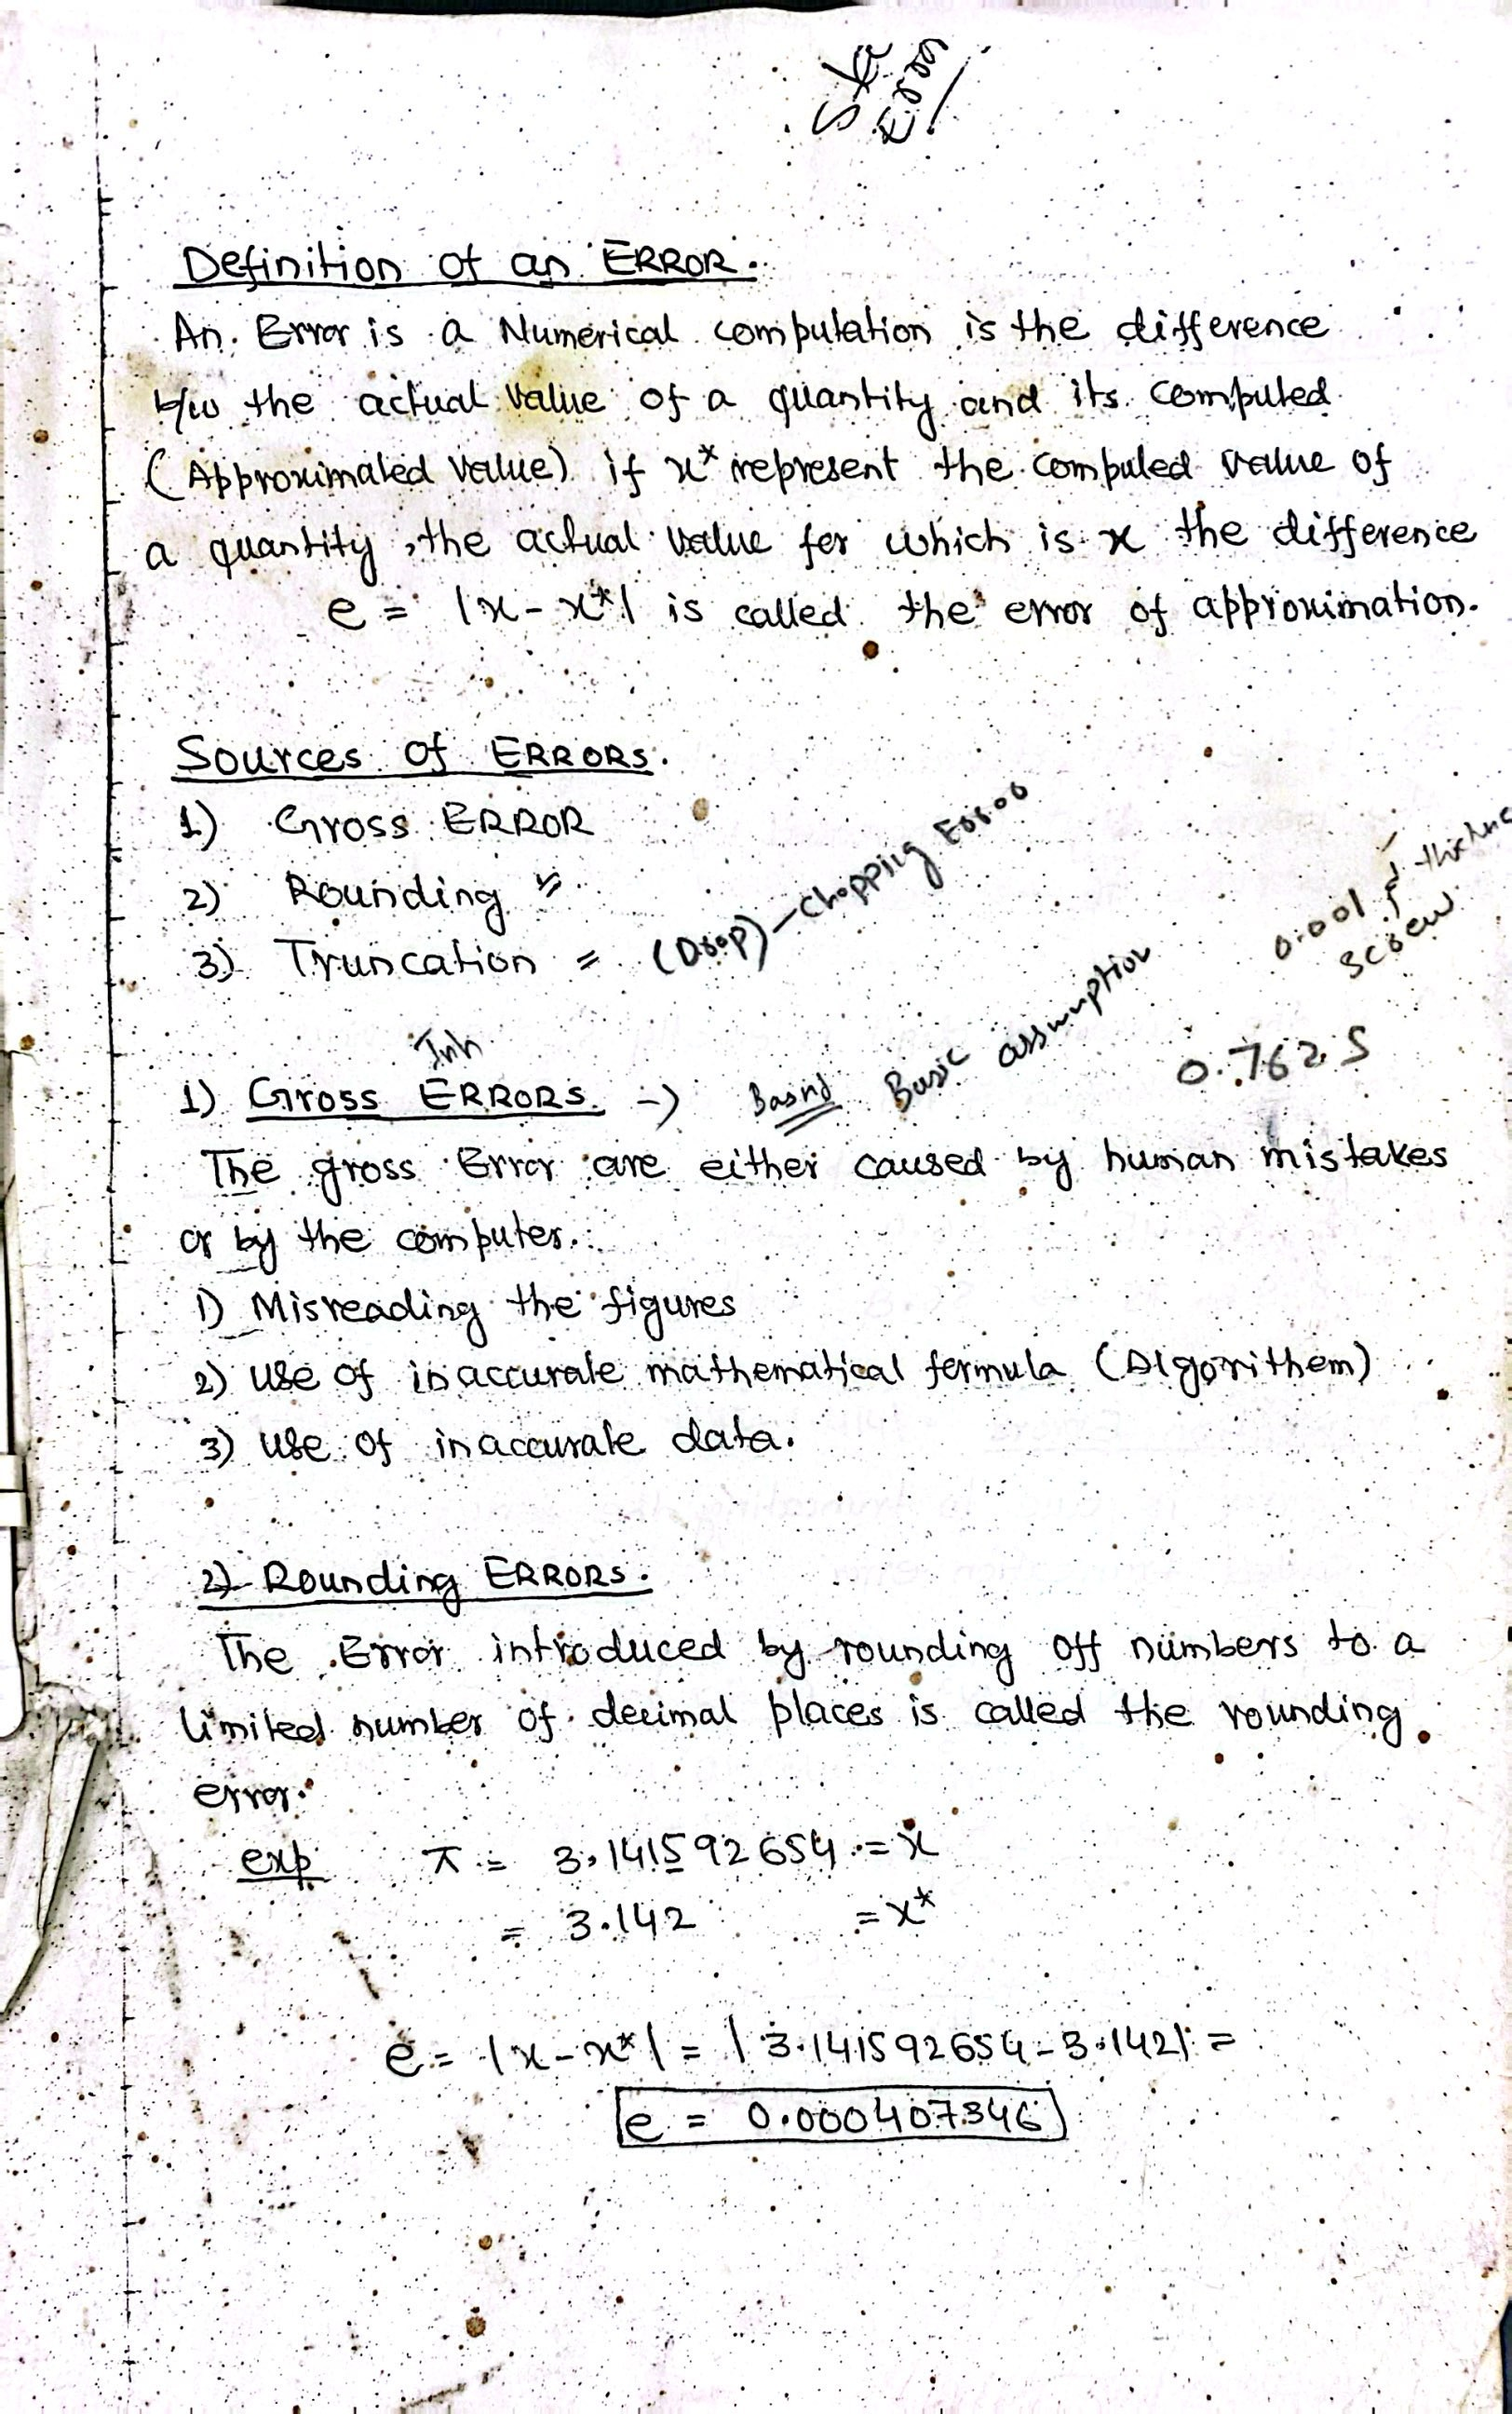 Definition of an ERROR.
An Error is a Numerical computation is the difference
b/w the actual value of a quantity and its computed
(Approximated value) if x* represent the computed value of
a quantity, the actual value for which is x the difference
e = |x - x*| is called the error of approximation.
Sources of ERRORS.
1) Gross ERROR
2) Rounding "
3) Truncation = (Drop) - Chopping Error
0.001 thickne
screw
Inh
1) Gross ERRORS. -> Basic assumption
0.7625
The gross Error are either caused by human mistakes
or by the computer.
1) Misreading the figures
2) Use of inaccurate mathematical formula (Algorithem)
3) Use of inaccurate data.
2) Rounding ERRORS.
The Error introduced by rounding off numbers to a
limited number of decimal places is called the rounding
error.
exp π = 3.141592654 = x
= 3.142 = x*
e = |x - x*| = |3.141592654 - 3.142| =
e = 0.000407346